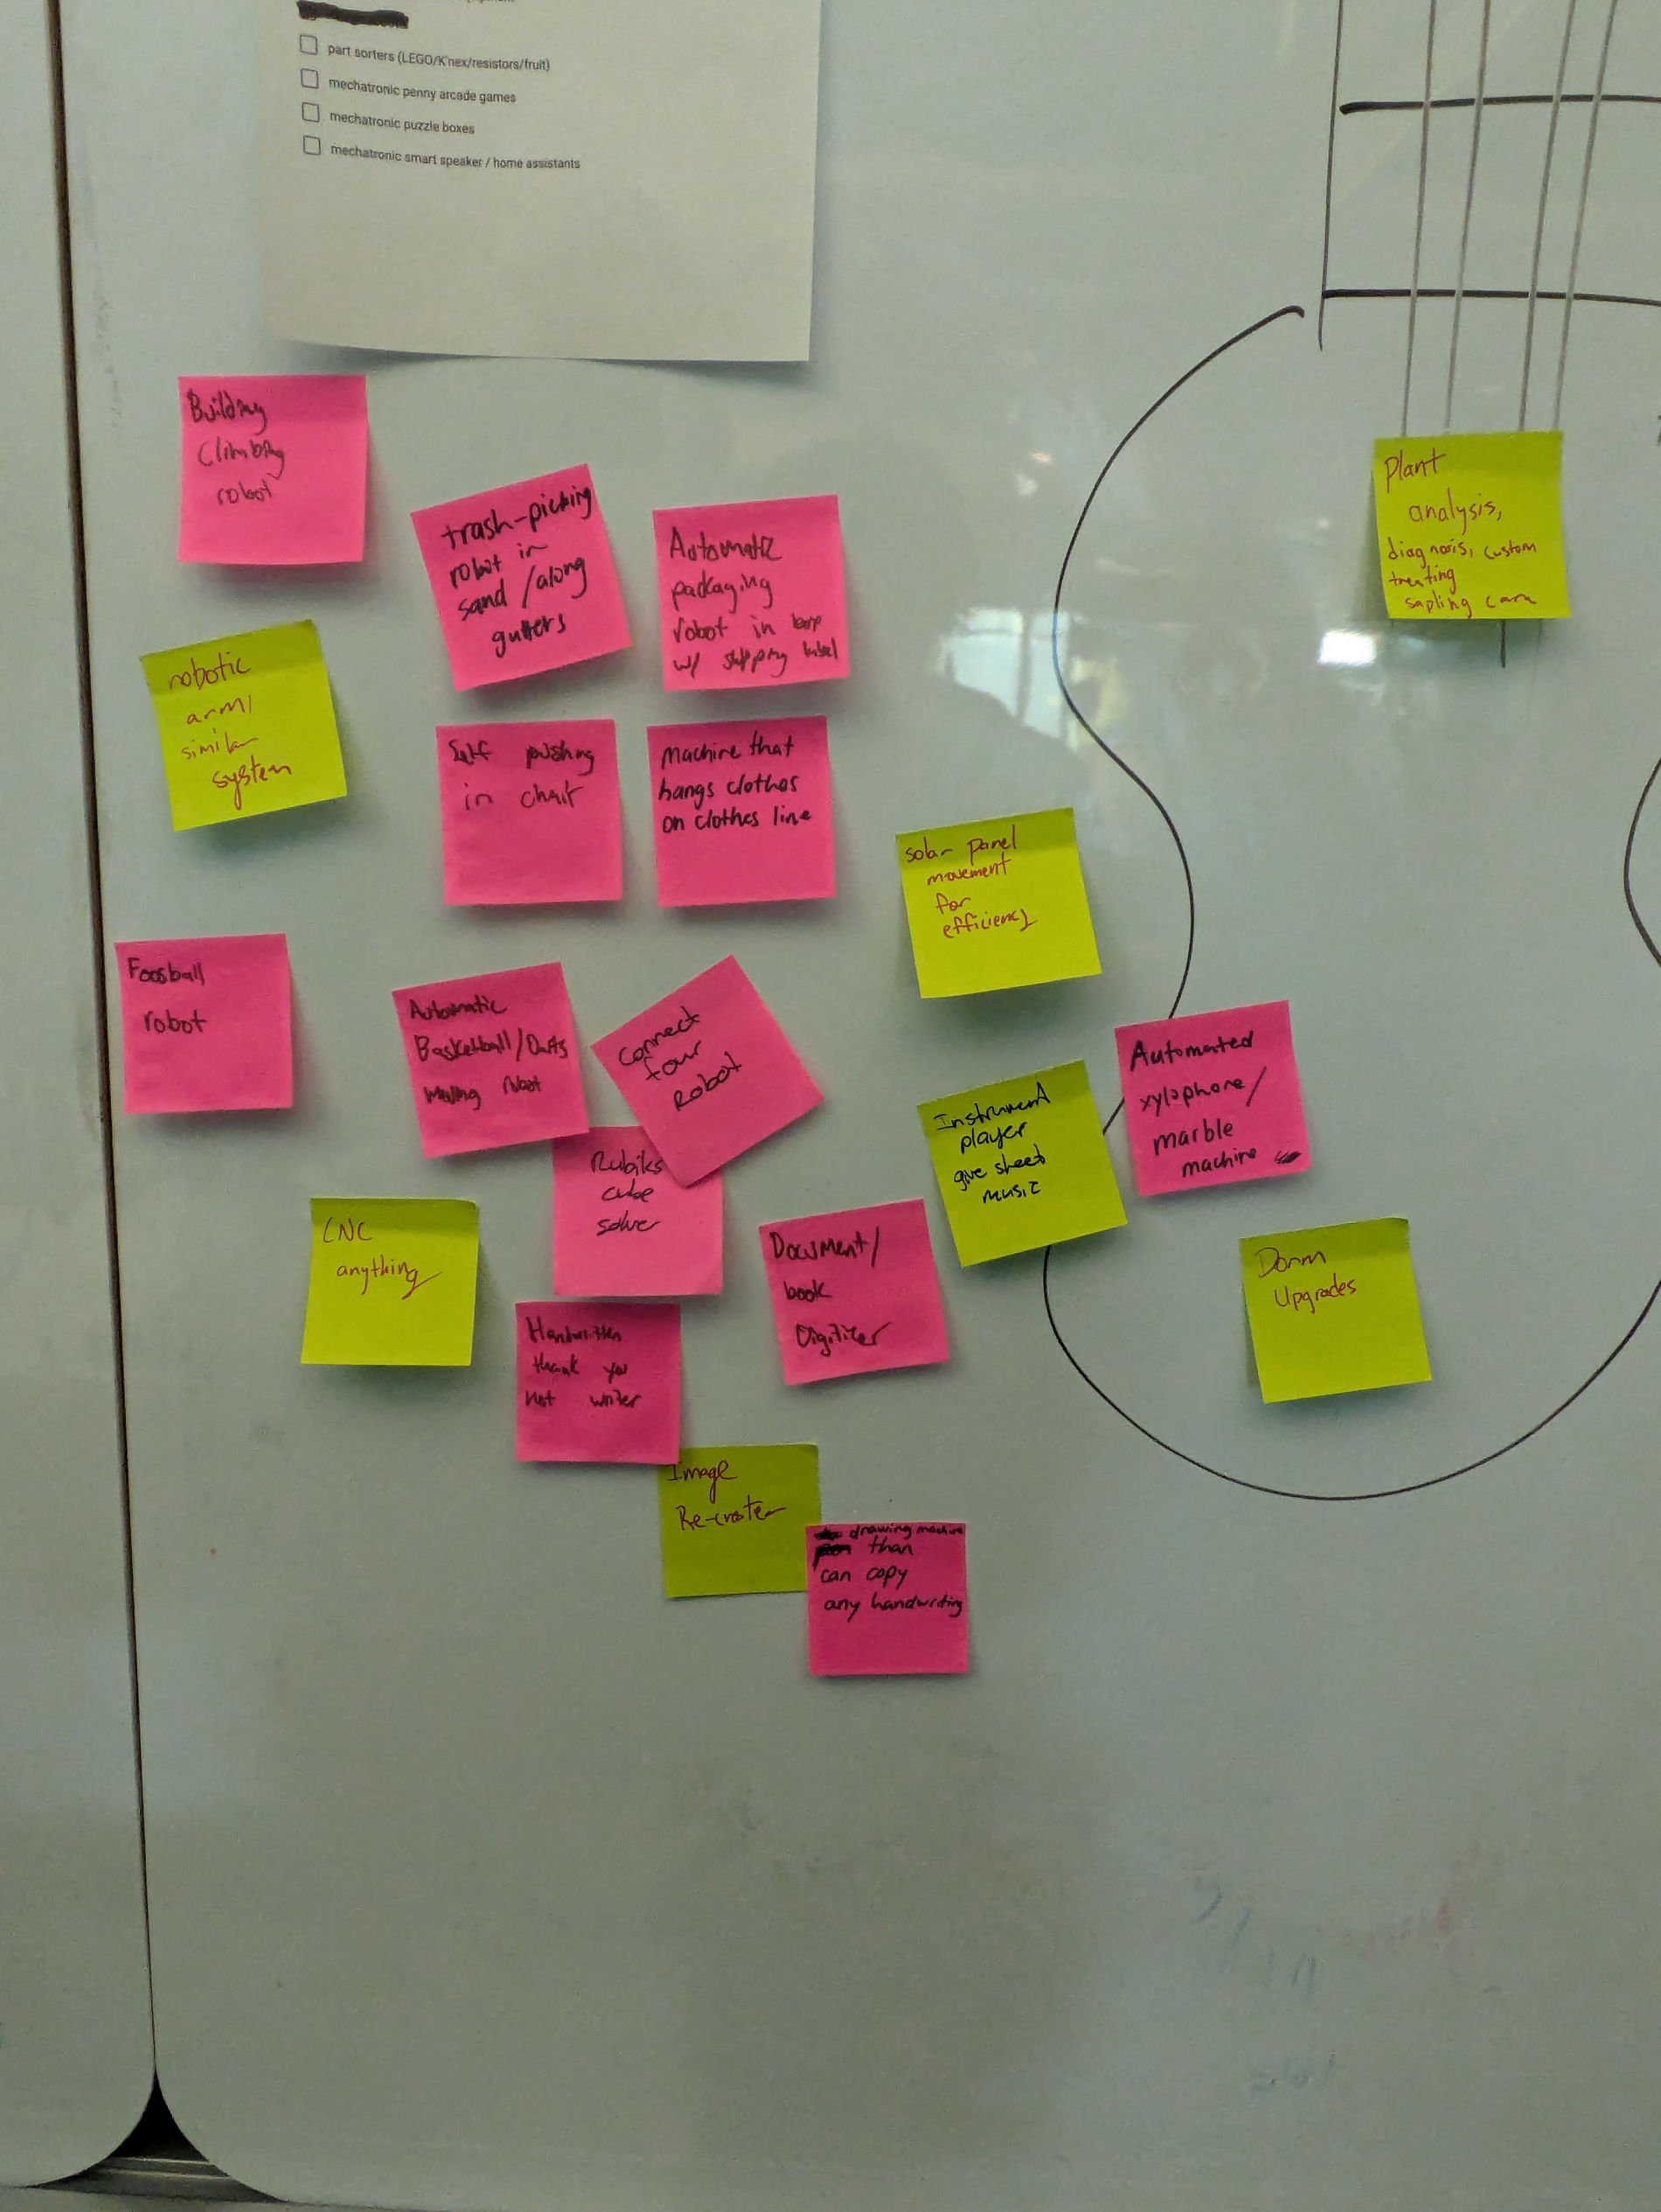 part sorters (LEGO/K'nex/resistors/fruit)
mechatronic penny arcade games
mechatronic puzzle boxes
mechatronic smart speaker / home assistants
Building
Climbing
robot
trash-picking
robot in
sand / along
gutters
Automatic
packaging
robot in
w/ shipping label
Plant
analysis,
diagnosis, custom
treating
sapling care
robotic
arm/
similar
system
Self pushing
in chair
Machine that
hangs clothes
on clothes line
solar panel
movement
for
efficiency
Foosball
robot
Automatic
Basketball/Darts
robot
Connect
four
Robot
Rubiks
cube
solver
Instrument
player
give sheet
music
Automated
xylophone/
marble
machine
CNC
anything
Document/
book
Digitizer
Dorm
Upgrades
Handwritten
thank you
not writer
Image
Re-creater
drawing machine
than
can copy
any handwriting